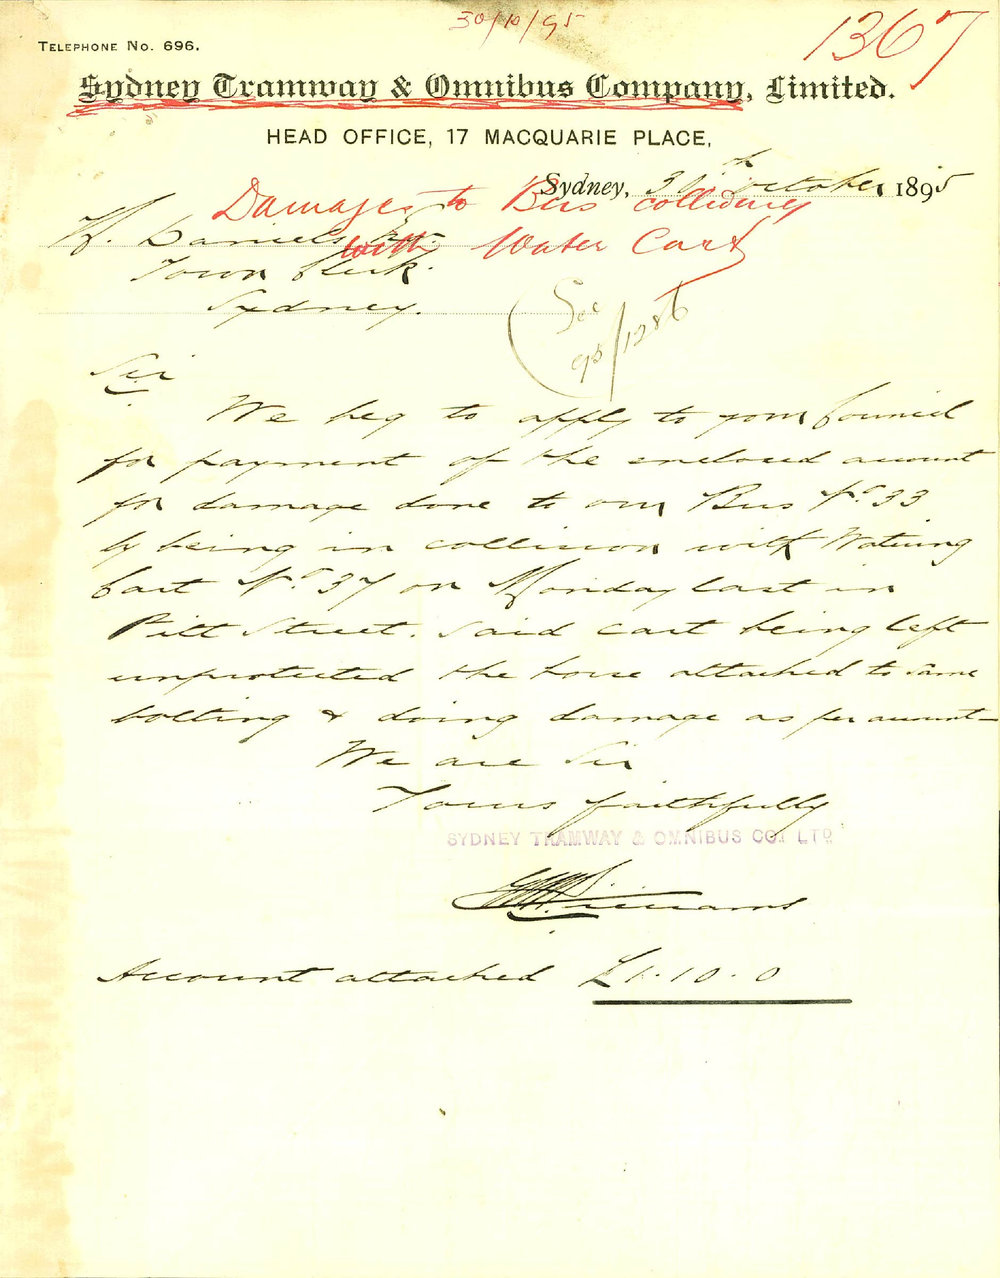 30/10/95
1367
TELEPHONE NO. 696.
Sydney Tramway & Omnibus Company, Limited.
HEAD OFFICE, 17 MACQUARIE PLACE,
Sydney, 30th October 1895
Damages to Bus colliding
with Water Cart
H. Daniels Esq.
Town Clerk.
Sydney.
See
95/1286
Sir
We beg to apply to your Council
for payment of the enclosed account
for damage done to our Bus No 33
by being in collision with Watering
Cart No 37 on Monday last in
Pitt Street. Said cart being left
unprotected the horse attached to same
bolting & doing damage as per account
We are Sir
Yours faithfully
SYDNEY TRAMWAY & OMNIBUS CO. LTD
Williams
Account attached £1.10.0